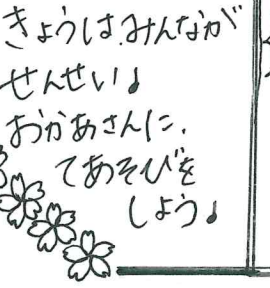 きょうは、みんなが
せんせい♪
おかあさんに、
てあそびを
しよう♪